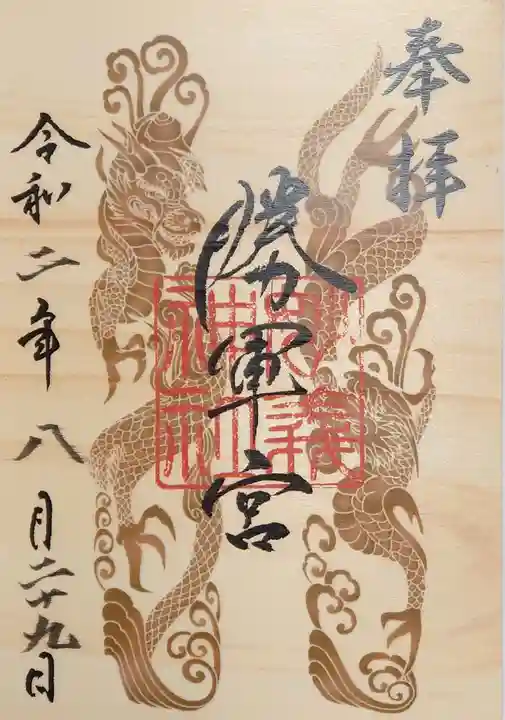 奉拝
勝軍宮
令和二年八月二十九日
神社